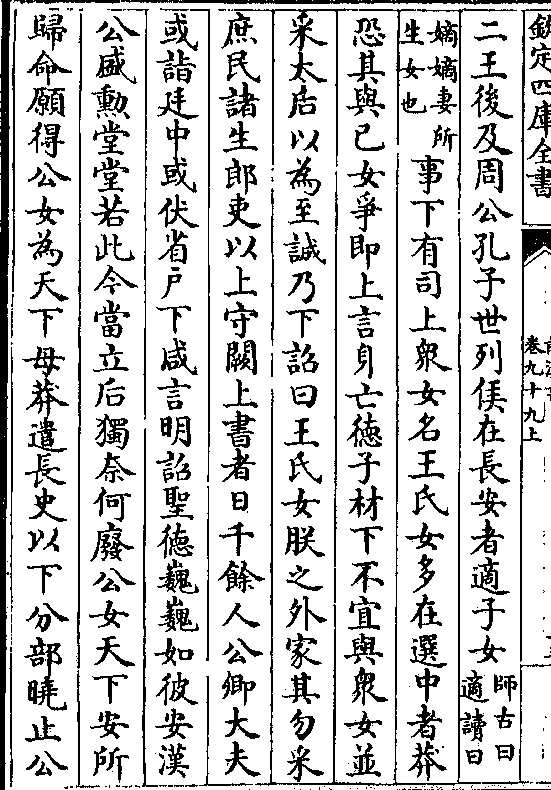 欽定四庫全書
卷九十九上
二王後及周公孔子世列侯在長安者適子女師古曰適讀曰
嫡嫡妻所生女也事下有司上衆女名王氏女多在選中者莽
恐其與己女爭即上言身亡德子材下不宜與衆女並
采太后以為至誠乃下詔曰王氏女朕之外家其勿采
庶民諸生郎吏以上守闕上書者日千餘人公卿大夫
或詣廷中或伏省戸下咸言明詔聖德巍巍如彼安漢
公盛勳堂堂若此今當立后獨奈何廢公女天下安所
歸命願得公女為天下母莽遣長史以下分部曉止公